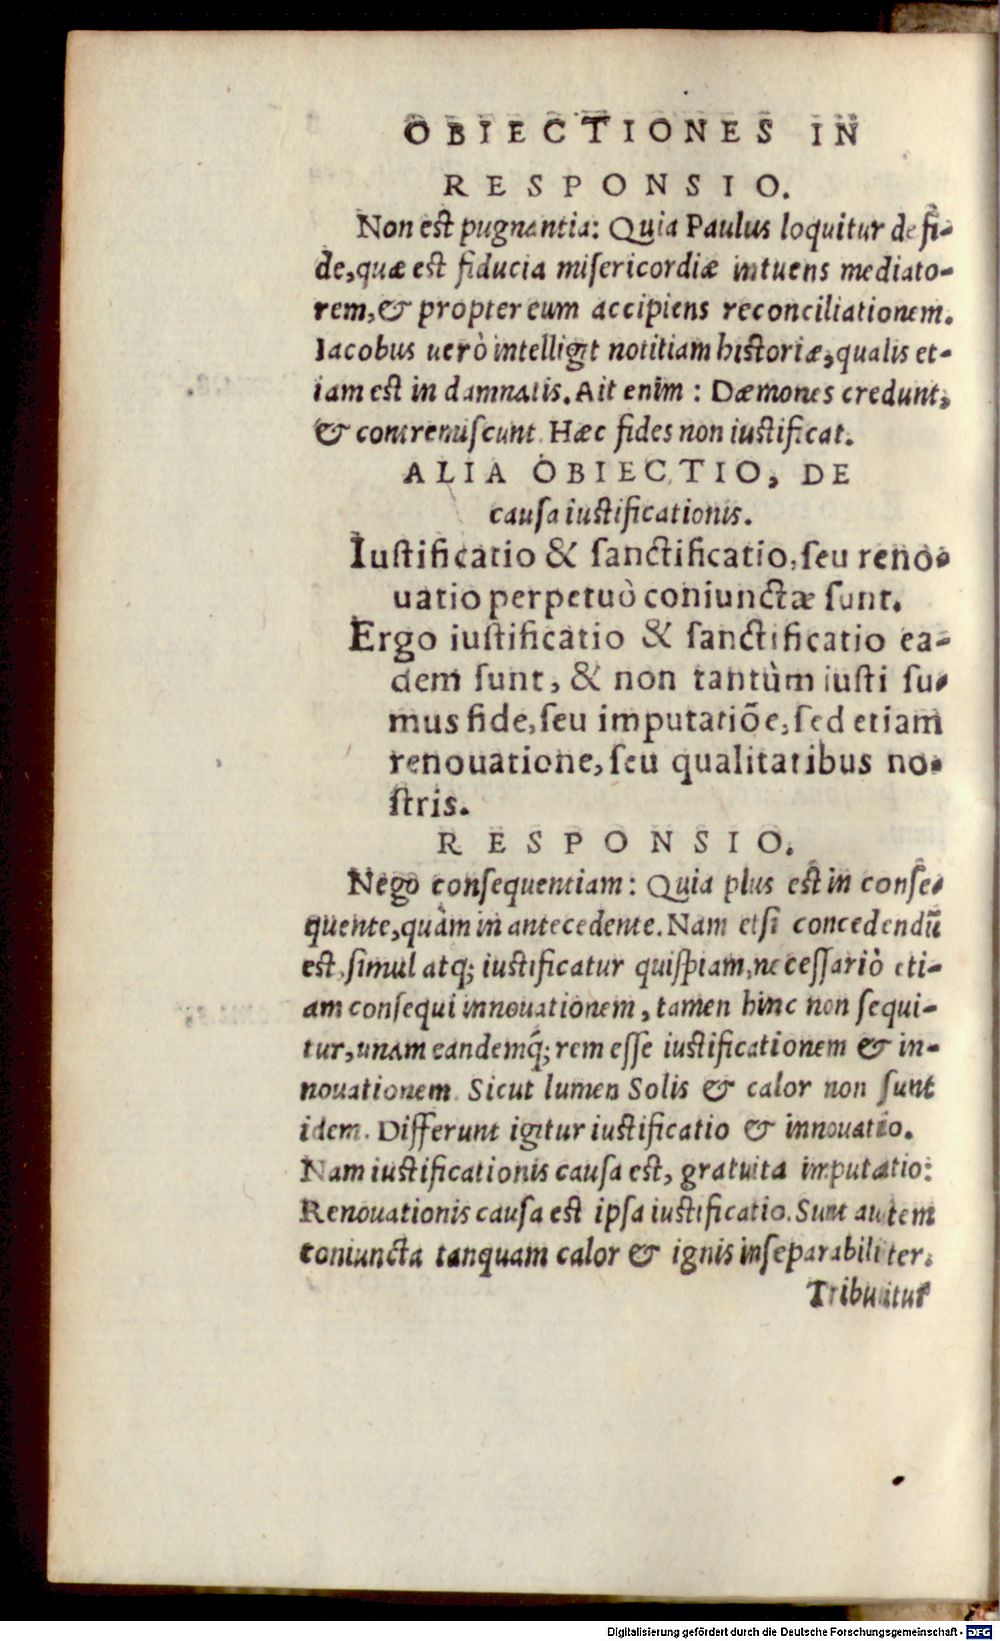 OBIECTIONES IN
RESPONSIO.
Non est pugnantia: Quia Paulus loquitur de fi-
de, quæ est fiducia misericordiæ intuens mediato-
rem, & propter eum accipiens reconciliationem.
Iacobus uerò intelligit notitiam historiæ, qualis et-
iam est in damnatis. Ait enim : Dæmones credunt,
& contremiscunt. Hæc fides non iustificat.
ALIA OBIECTIO, DE
causa iustificationis.
Iustificatio & sanctificatio, seu reno-
uatio perpetuò coniunctæ sunt.
Ergo iustificatio & sanctificatio ea-
dem sunt, & non tantùm iusti su-
mus fide, seu imputatiõe, sed etiam
renouatione, seu qualitatibus no-
stris.
RESPONSIO.
Nego consequentiam: Quia plus est in conse-
quente, quàm in antecedente. Nam etsi concedendũ
est, simul atq; iustificatur quispiam, necessariò eti-
am consequi innouationem, tamen hinc non sequi-
tur, unam eandemq́; rem esse iustificationem & in-
nouationem. Sicut lumen Solis & calor non sunt
idem. Differunt igitur iustificatio & innouatio.
Nam iustificationis causa est, gratuita imputatio:
Renouationis causa est ipsa iustificatio. Sunt autem
coniuncta tanquam calor & ignis inseparabiliter.
Tribuitur
Digitalisierung gefördert durch die Deutsche Forschungsgemeinschaft - DFG